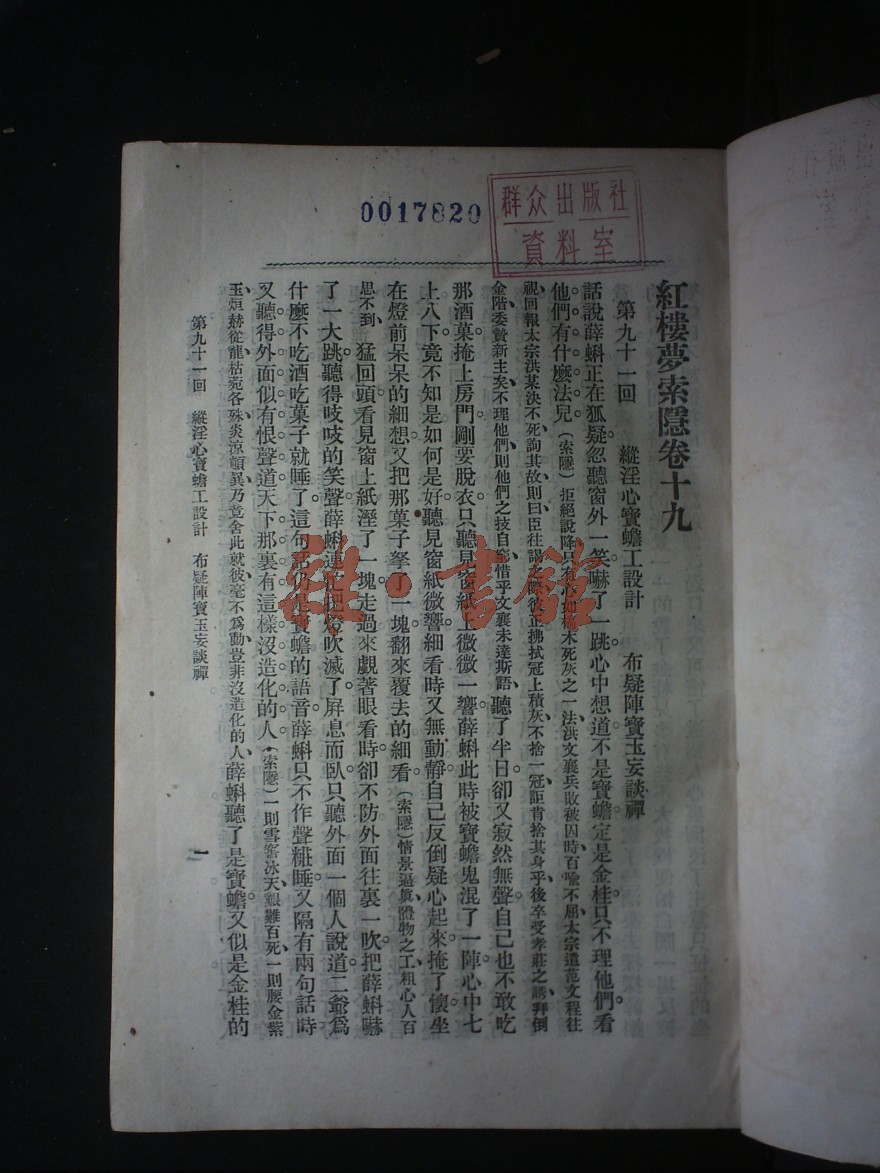 0017820
群众出版社
資料室
紅樓夢索隱卷十九
第九十一回 縱淫心寶蟾工設計 布疑陣寶玉妄談禪
話說薛蝌正在狐疑忽聽窗外一笑嚇了一跳心中想道不是寶蟾定是金桂只不理他們看
他們有什麼法兒(索隱)拒絕說降只有心如槁木死灰之一法洪文襄兵敗被囚時百喩不屈太宗遣范文程往
視回報太宗洪某決不死詢其故則曰臣往謁之際彼正拂拭冠上積灰不捨一冠詎肯捨其身乎後卒受孝莊之誘拜倒
金階委贄新主矣不理他們則他們之技自窮惜乎文襄未達斯語聽了半日卻又寂然無聲自己也不敢吃
那酒菓掩上房門剛要脫衣只聽見窗紙上微微一響薛蝌此時被寶蟾鬼混了一陣心中七
上八下竟不知是如何是好聽見窗紙微響細看時又無動靜自己反倒疑心起來掩了懷坐
在燈前呆呆的細想又把那菓子拏了一塊翻來覆去的細看(索隱)情景逼眞體物之工粗心人百
思不到猛回頭看見窗上紙溼了一塊走過來覷著眼看時卻不防外面往裏一吹把薛蝌嚇
了一大跳聽得吱吱的笑聲薛蝌連忙把燈吹滅了屏息而臥只聽外面一個人說道二爺爲
什麼不吃酒吃菓子就睡了這句話仍是寶蟾的語音薛蝌只不作聲糚睡又隔有兩句話時
又聽得外面似有恨聲道天下那裏有這樣沒造化的人(索隱)一則雪窖冰天艱難百死一則腰金紫
玉烜赫從龍枯菀各殊炎涼頓異乃竟舍此就彼毫不爲動豈非沒造化的人薛蝌聽了是寶蟾又似是金桂的
第九十一回 縱淫心寶蟾工設計 布疑陣寶玉妄談禪
一
雅·書館